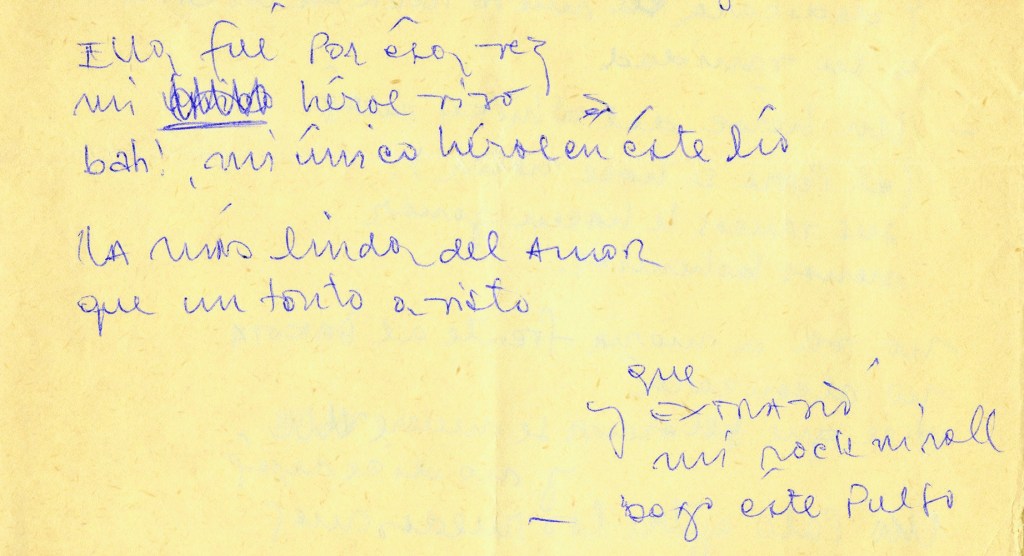 Ella fué por ésa vez
mi héroe vivo
bah! , mi único héroe en éste lío
la más linda del amor
que un tonto a visto
que
y extravió
mi rock n'roll
— bajo éste pulso